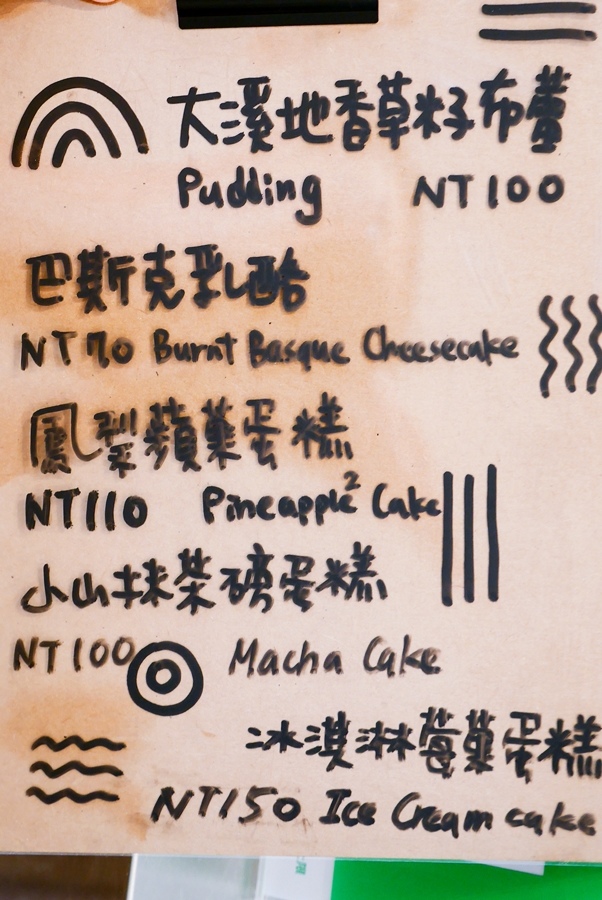 大溪地香草籽布蕾
Pudding NT100
巴斯克乳酪
NT70 Burnt Basque Cheesecake
鳳梨蘋菓蛋糕
NT110 Pineapple² Cake
小山抹茶磅蛋糕
NT100 Macha Cake
冰淇淋莓菓蛋糕
NT150 Ice Cream cake